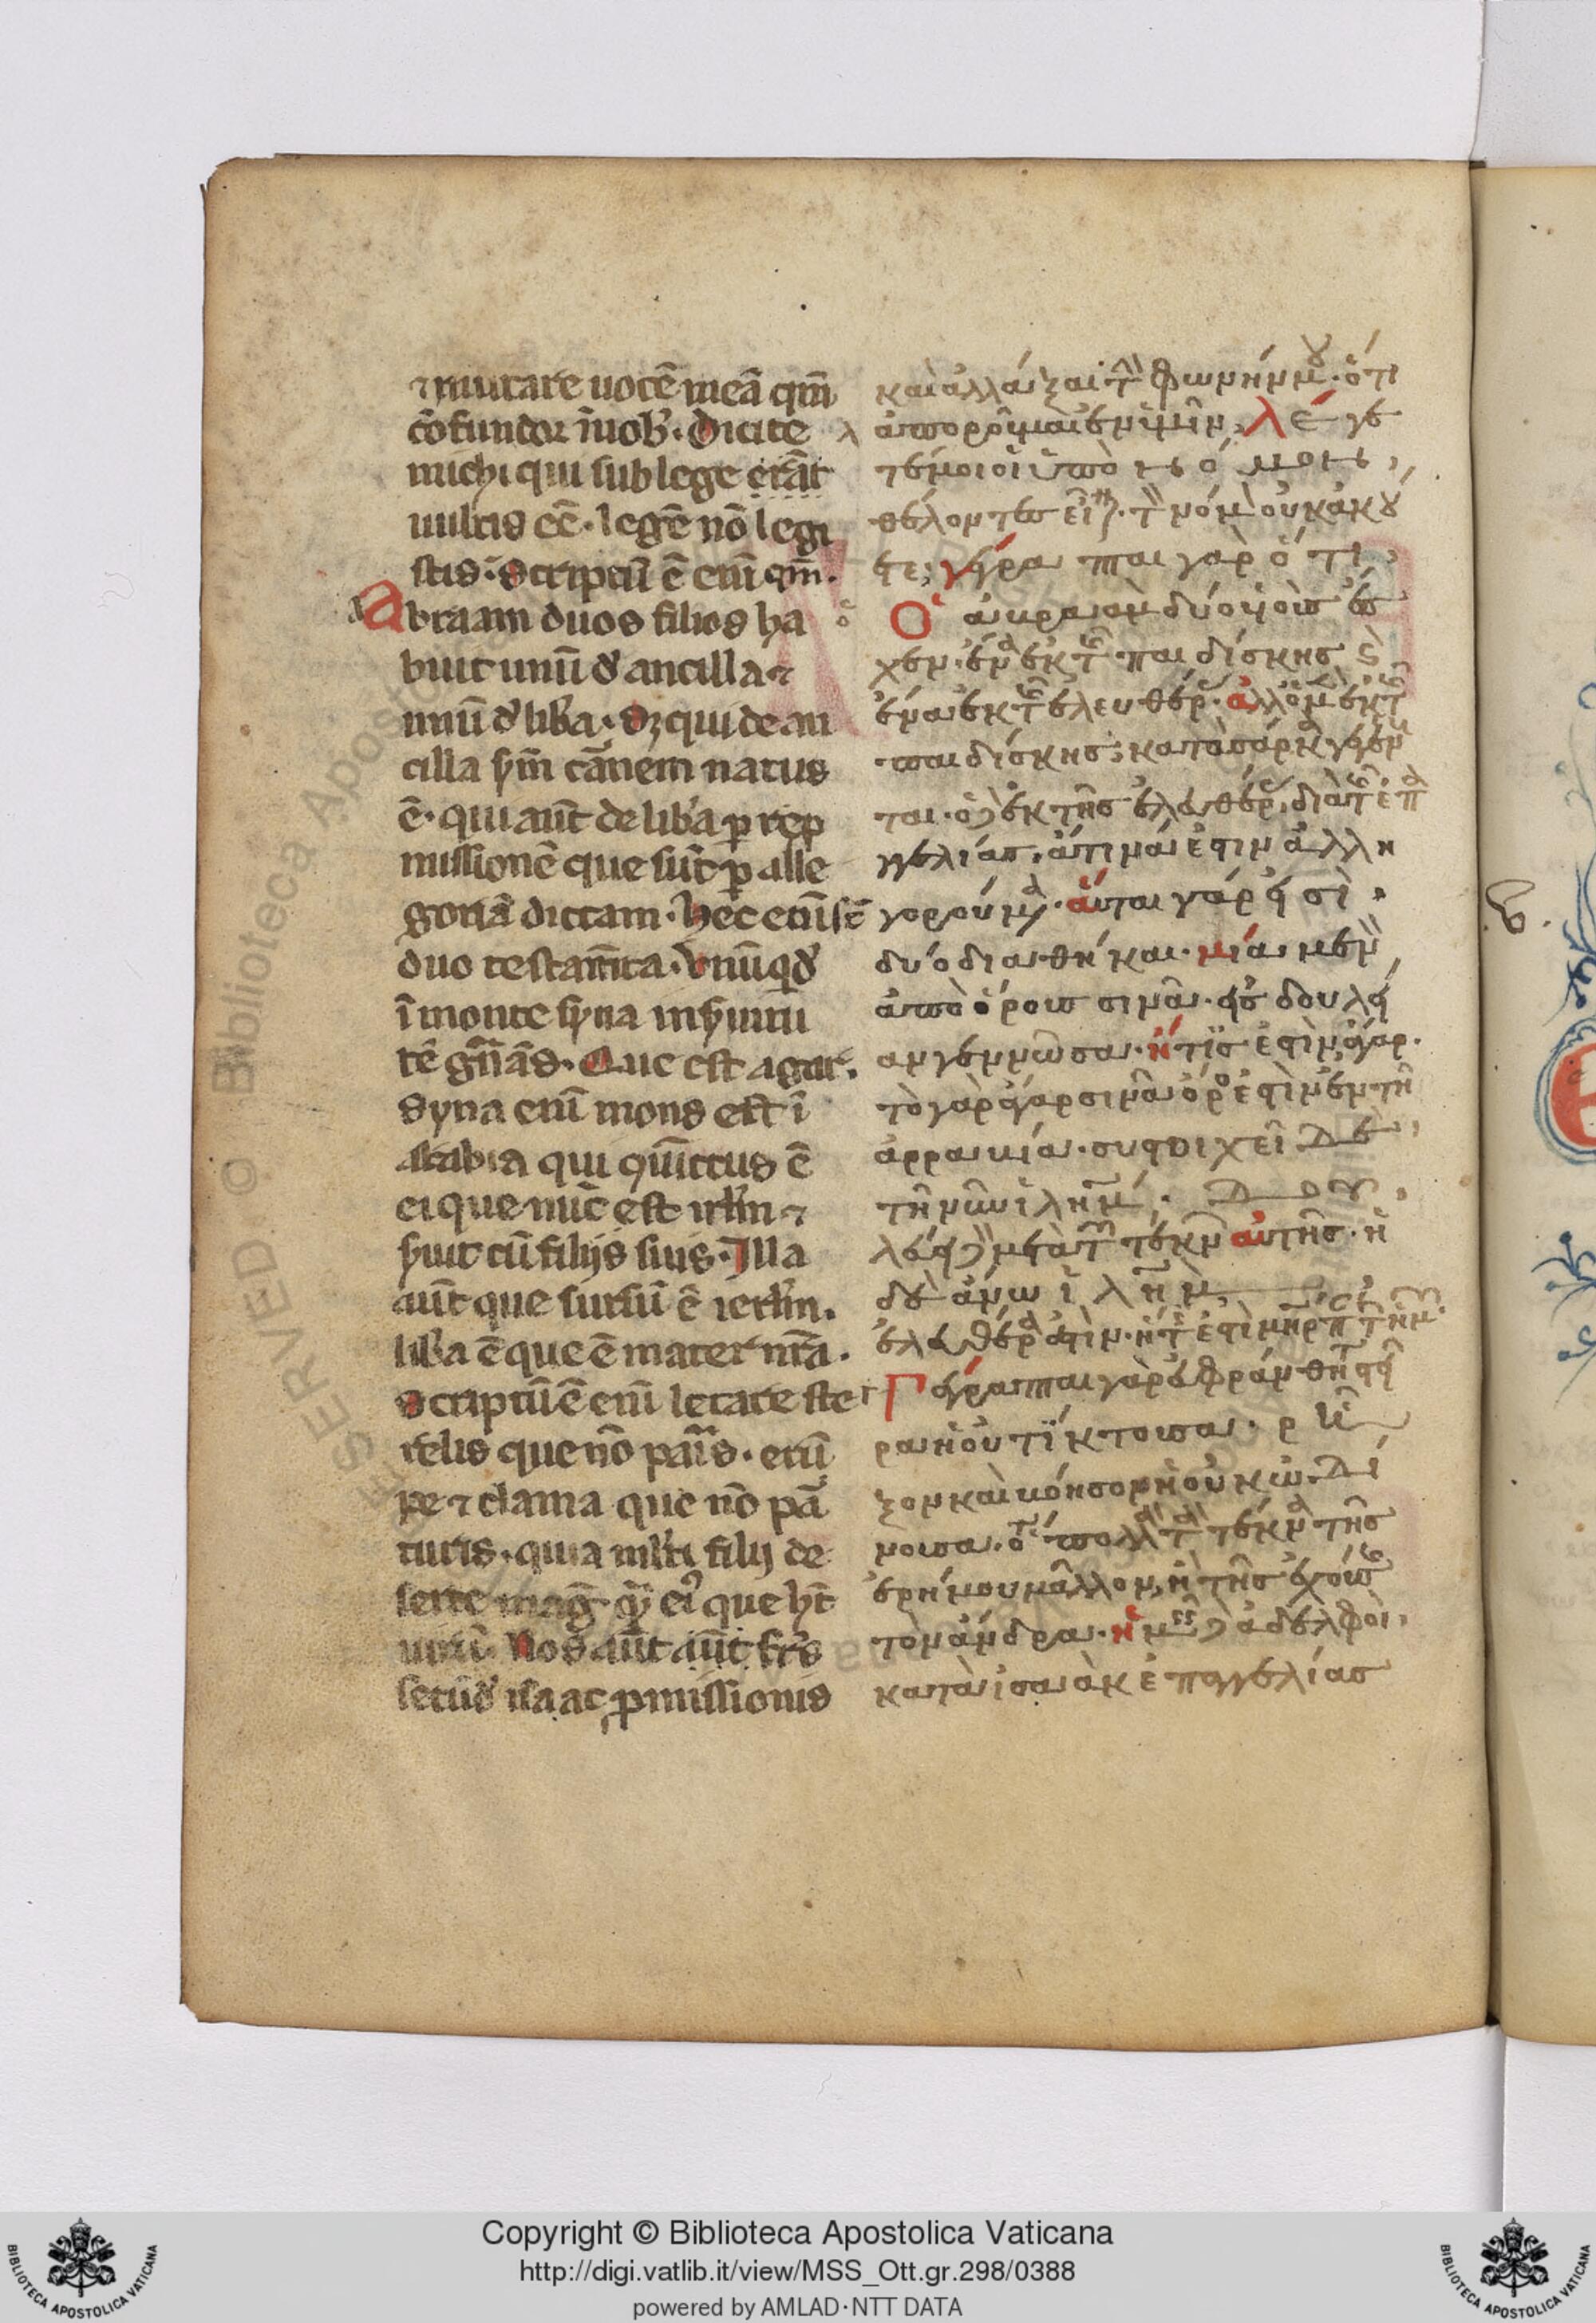 ⁊ mutare uocē meā qm̄
cōfundor ī uob᾽. Dicite
michi qui sub lege erāt
uultis eē. legē nō legi
stis. Scriptū ē eni qm̄.
Abraam duos filios ha
buit unū d᾽ ancilla ⁊
unū d᾽ lib᾽a. Sꝫ qui de an
cilla sm̄ cārnem natus
ē. qui aūt de lib᾽a ꝑ rep
missionē que sūt ꝑ alle
goriā dictam. Hec enī sē
duo testam̄ta. Vnū qd᾽
ī monte syna in suitu
tē gn̄ās. Que est agar.
Syna enī mons est ī
arabia qui qūictus ē
ei que nūc est irl᾽m ⁊
suit cū filijs suis. Illa
aūt que sursū ē ierl᾽m.
lib᾽a ē que ē mater nr̄a.
Scriptū ē enī letare ste
relis que nō paris. erū
pe ⁊ clama que nō pā
turis. quia ml᾽ti filij de
serte mag̅ q̄ ei᾽ que ht̄
uirū. Nos aūt aūt fr̄s
secūd᾽ isaac ꝓmissionis
καὶ ἀλλάξαι τ̀ φωνήν μȣ. ὅτι
ἀποροῦμαι ἐν ὑμῖν. λέγε
τέ μοι οἱ ὑπὸ νόμον
θέλοντεσ εἶν. τ̀ νόμ οὐκ ἀκȣ́
ετε; γέγραπται γὰρ ὅτι
Ὁ ἀβραὰμ δύο υἱοὺσ ἔσ
χεν. ἕνα ἐκ τ̂ παιδίσκησ κ̀
ἕνα ἐκ τ̂ ἐλευθέρ. ἀλλ ὁ μ ἐκ τ̂
παιδίσκησ; κατὰ σάρκα γεγέν
ται. ὁ δ ἐκ τῆσ ἐλευθέρ, διὰ τ̂ ἐπ
γγελίασ. ἅτινά ἐστιν ἀλλη
γορούμ. αὗται γάρ εἰσὶ
δύο διαθῆκαι. μία μὲν
ἀπὸ ὄρουσ σινᾶ. εἰσ δουλεί
αν γεννῶσα. ἥτις ἐστὶν ἄγαρ.
τὸ γὰρ ἄγαρ σινᾶ ὄρο ἐστὶν ἐν τῆ
ἀρραβία. συστοιχεῖ δὲ
τῆ νῦν ἱλήμ. δου
λεύει δ μετὰ τ̂ τέκν αὐτῆσ. ἡ
δὲ ἄνω ἱλήμ
ἐλευθέρα ἐστὶν. ἥτ ἐστὶ μηρ π τ ἡμ
Γέγραπται γὰρ εὐφράνθητ στεῖ
ρα ἡ οὐ τίκτουσα. ρῆ
ξον καὶ βόησον ἡ οὐκ ὠδί
νουσα. ὅτ πολλ τ̀ τέκνα τῆσ
ἐρήμου μᾶλλον, ἢ τῆσ ἐχούσ
τὸν ἄνδρα. ἡμεῖς δ ἀδελφοὶ
κατὰ ἰσαὰκ ἐπαγγελίασ
Copyright © Biblioteca Apostolica Vaticana
http://digi.vatlib.it/view/MSS_Ott.gr.298/0388
powered by AMLAD·NTT DATA